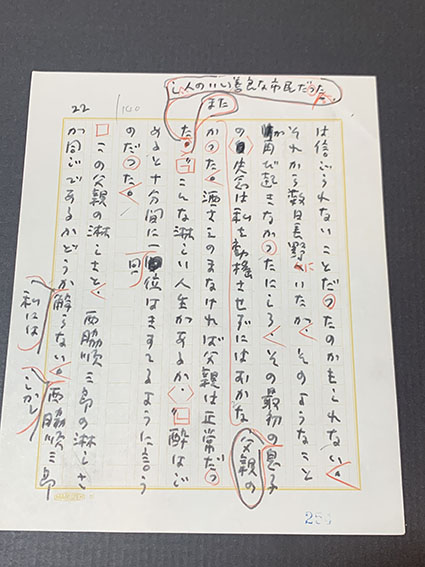 22
140
人のいい善良な市民だった
また
は信じられないことだったのかもしれない。
それから数日長野にいたが、そのようなこと
が再び起きなかったにしろ、その最初の息子
の失念は私を動揺させずにはおかな
父親の
かった。酒さえのまなければ父親は正常だっ
た。「こんな淋しい人生があるか、」酔はじ
めると十分間に一回位はきまってるように言う
のだった。
この父親の淋しさと、西脇順三郎の淋しさ
が同じであるかどうか解らない。西脇順三郎
私には
しかし